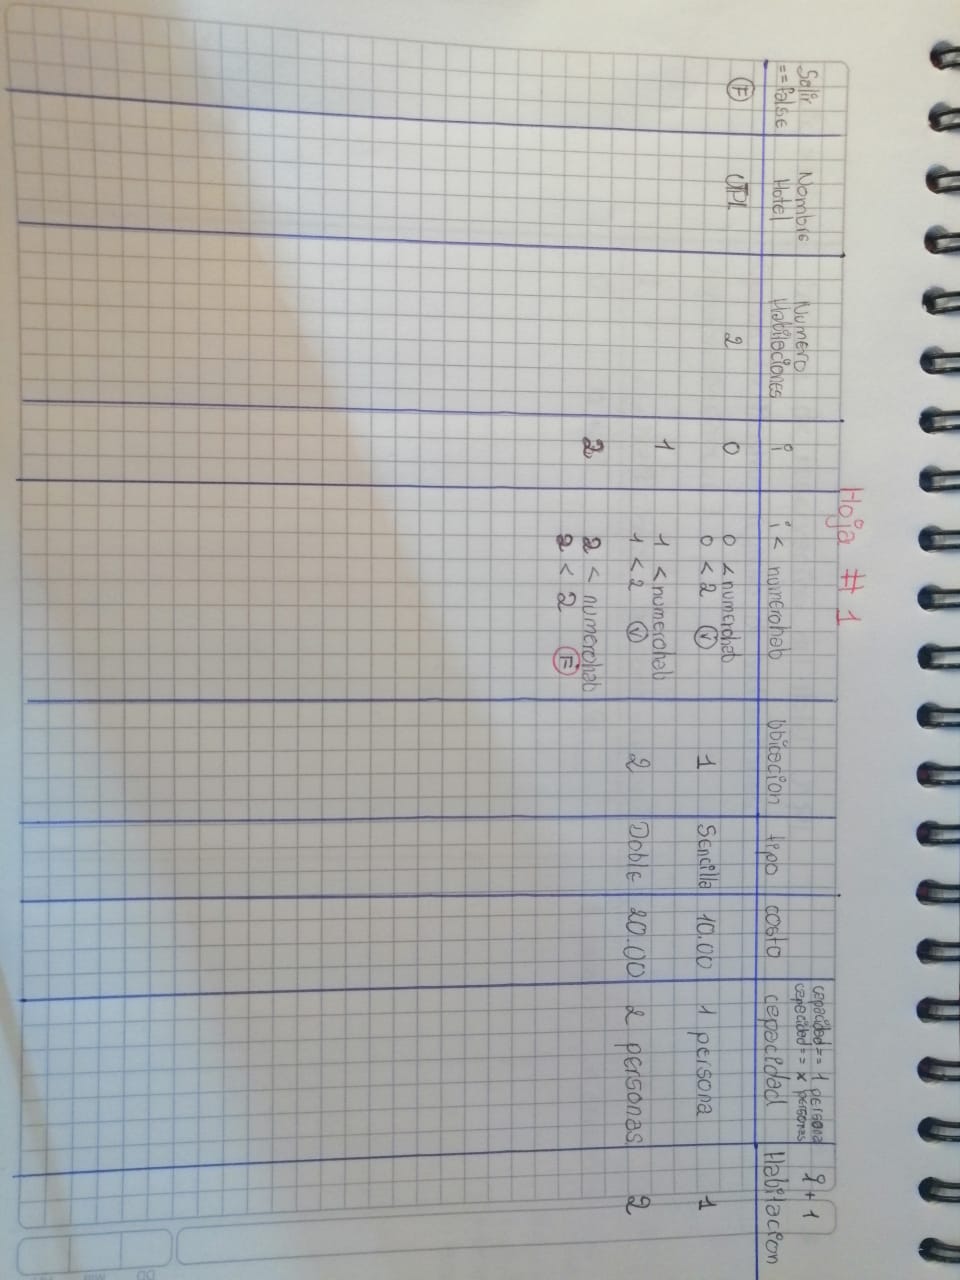 Hoja # 1
Salir
==false
Nombre
Hotel
Numero
Habitaciones
i
i < numerohab
Ubicacion
tipo
costo
capacidad== 1 persona
capacidad== x personas
capacidad
i + 1
Habitacion
F
UTPL
2
0
0 < numerohab
0 < 2 V
1
Sencilla
10.00
1 persona
1
1
1 < numerohab
1 < 2 V
2
Doble
20.00
2 personas
2
2
2 < numerohab
2 < 2 F